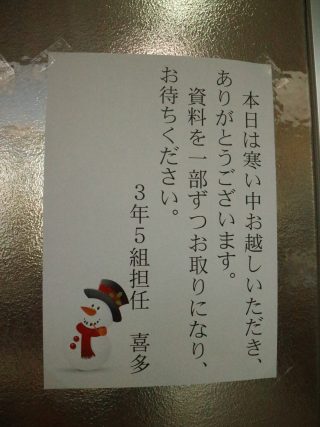 本日は寒い中お越しいただき、
ありがとうございます。
資料を一部ずつお取りになり、
お待ちください。
３年５組担任　喜多